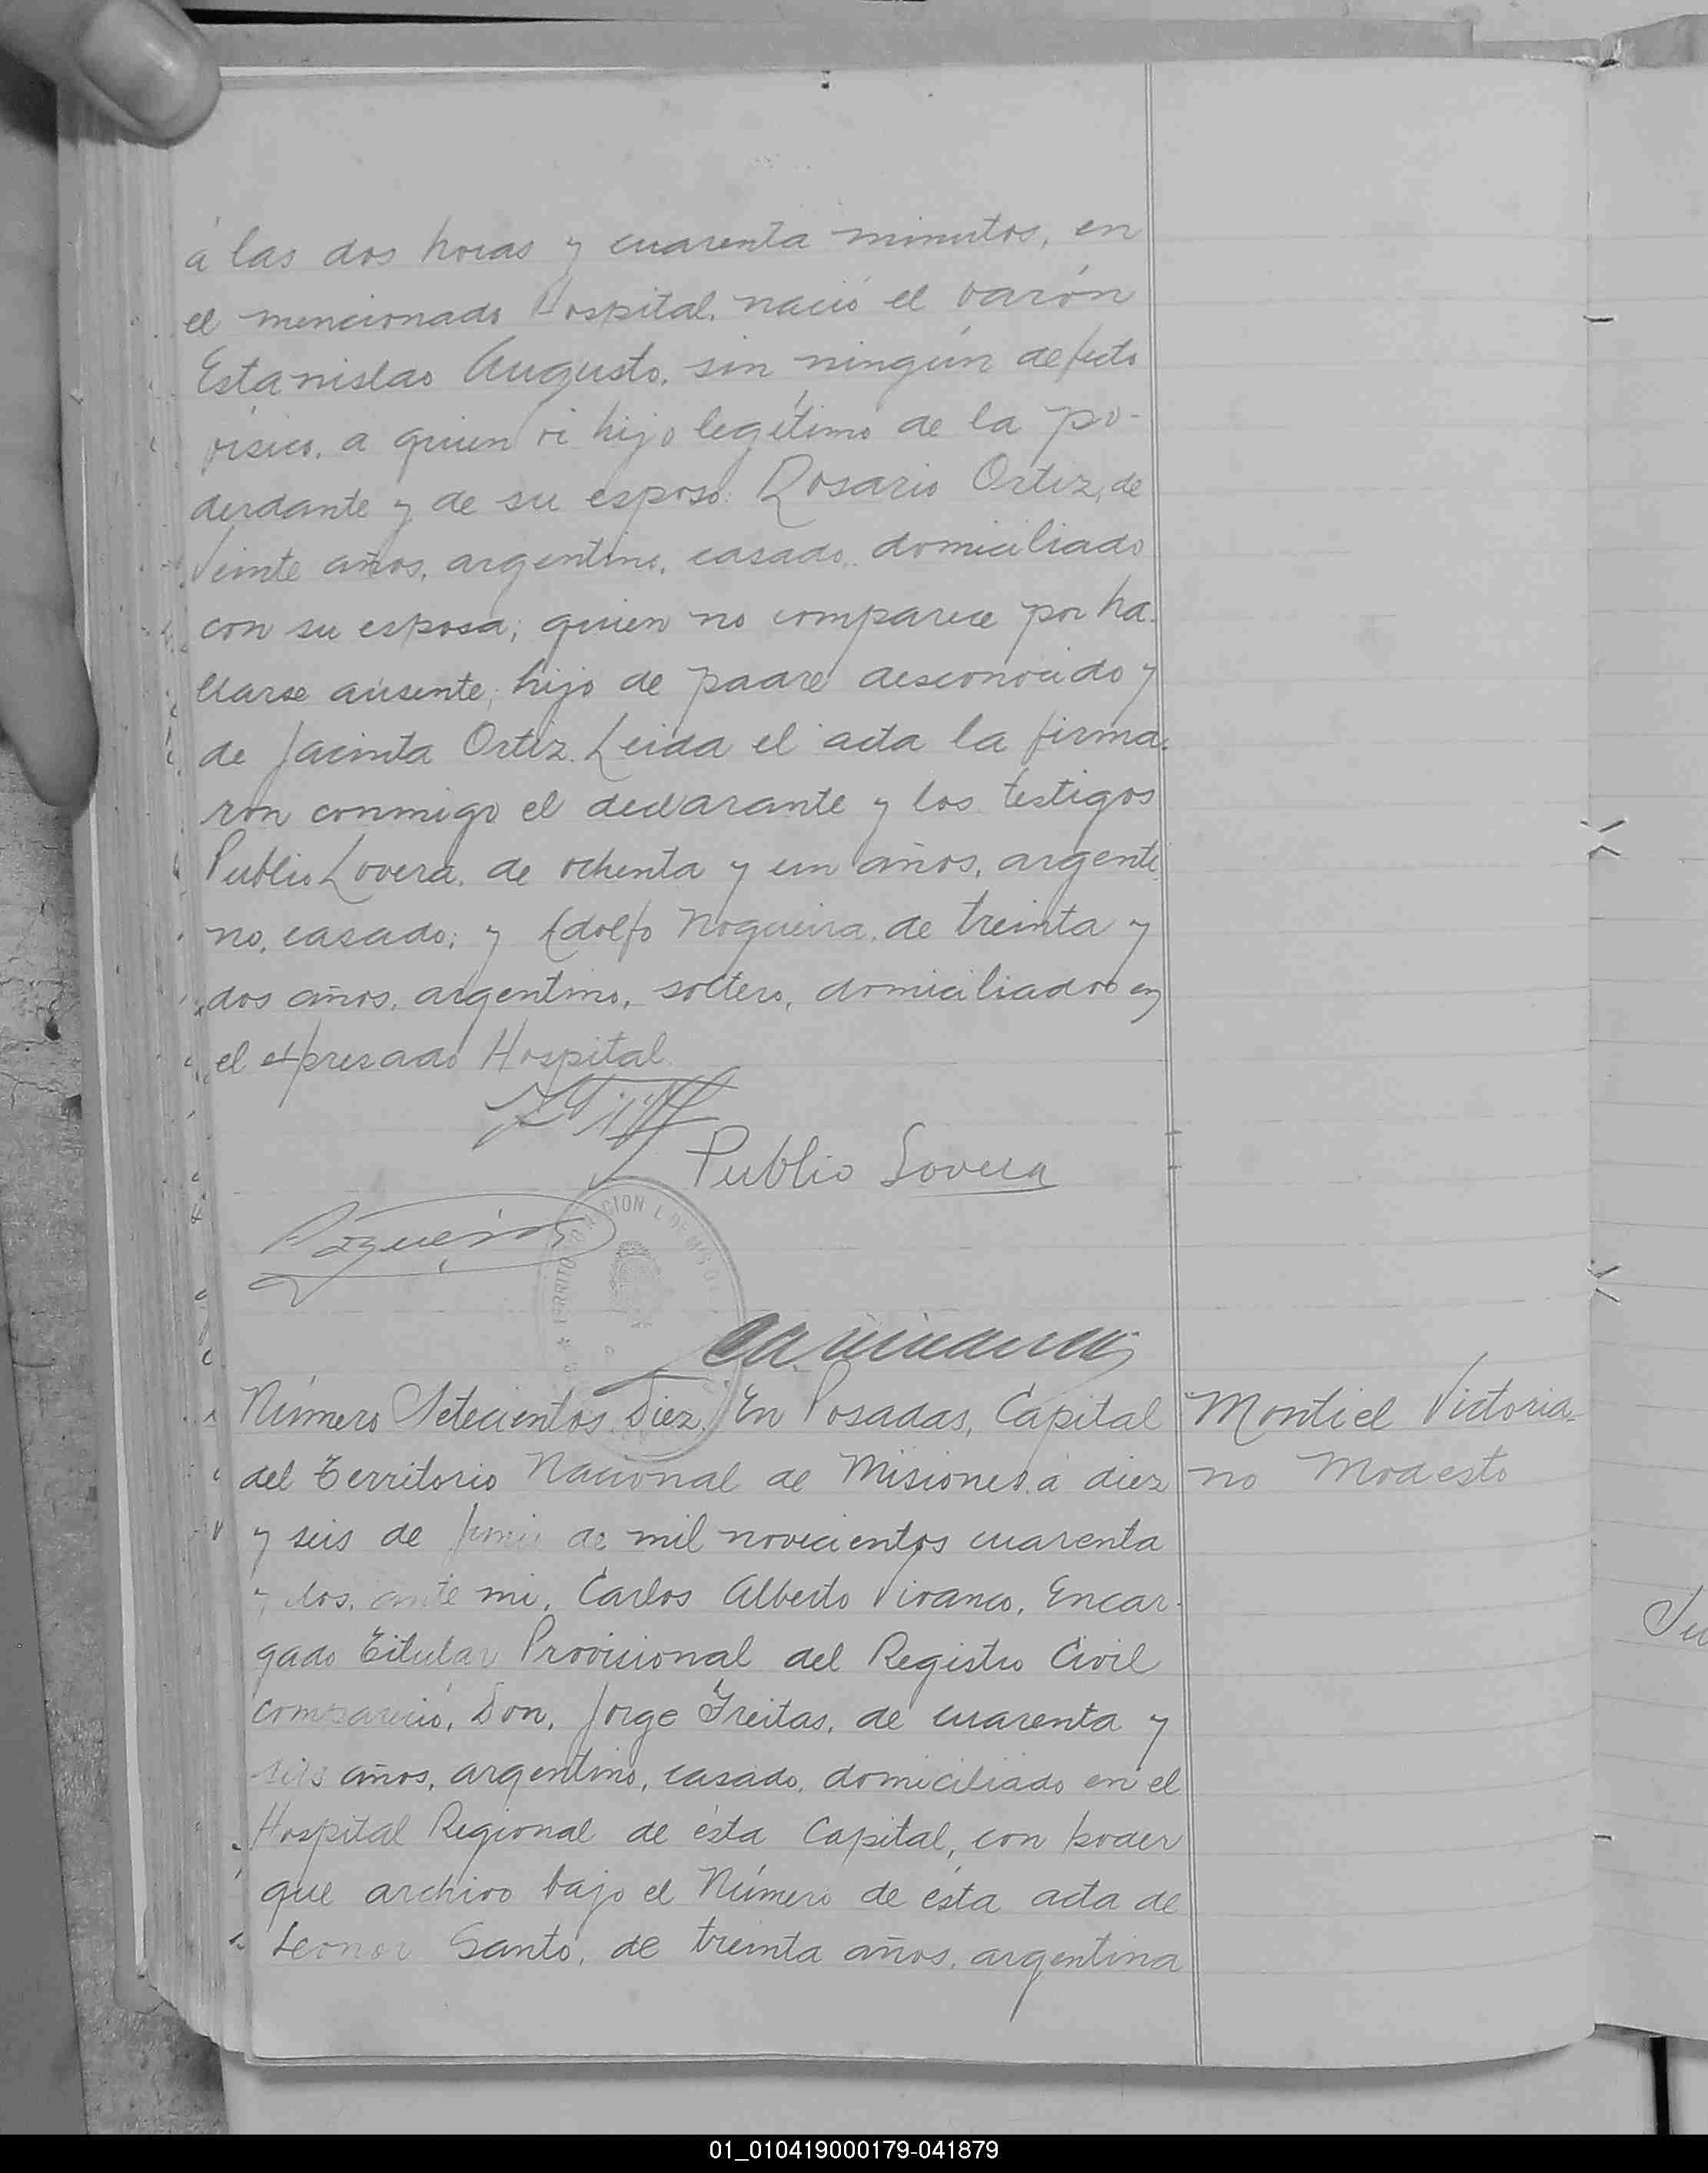 á las dos horas y cuarenta minutos, en
el mencionado Hospital, nació el varón
Estanislao Augusto, sin ningún defecto
físico, a quien vi hijo legítimo de la po-
derdante y de su esposo: Rosario Ortiz, de
Veinte años, argentino, casado, domiciliado
con su esposa; quien no comparece por ha-
llarse ausente; hijo de padre desconocido y
de Jacinta Ortiz. Leida el acta la firma-
ron conmigo el declarante y los testigos
Publio Lovera, de ochenta y un años, argenti-
no, casado; y Adolfo Nogueira, de treinta y
dos años, argentino, soltero, domiciliados en
el expresado Hospital
Publio Lovera
Nogueira
TERRITORIO NACIONAL DE MISIONES
Número Setecientos Diez. En Posadas, Capital
del Territorio Nacional de Misiones á diez
y seis de Junio de mil novecientos cuarenta
y dos, ante mi, Carlos Alberto Vivanco, Encar-
gado Titular Provisional del Registro Civil
compareció, Don, Jorge Freitas, de cuarenta y
seis años, argentino, casado, domiciliado en el
Hospital Regional de ésta Capital, con poder
que archivo bajo el Número de ésta acta de
Leonor Santo, de treinta años, argentina
Montiel Victoria-
no Modesto
01_010419000179-041879